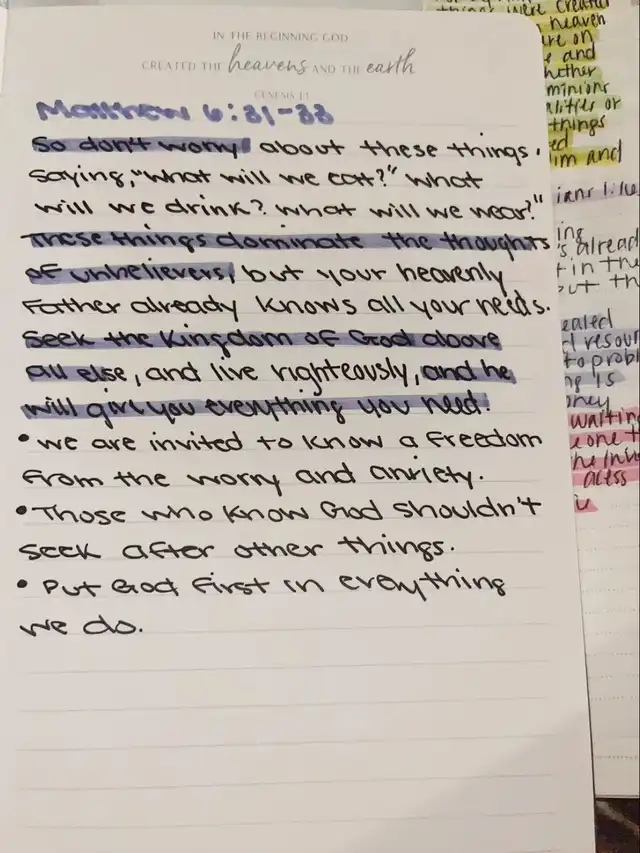 IN THE BEGINNING GOD
CREATED THE heavens AND THE earth
GENESIS 1:1
Matthew 6:31-33
So don't worry about these things,
saying, "what will we eat?" what
will we drink? what will we wear?"
These things dominate the thoughts
of unbelievers, but your heavenly
Father already knows all your needs.
Seek the Kingdom of God above
all else, and live righteously, and he
will give you everything you need.
• we are invited to know a freedom
from the worry and anxiety.
• Those who know God shouldn't
seek after other things.
• Put God first in everything
we do.
things were created
heaven
are on
and
whether
minions
alities or
things
ed
im and
ians like
ing
s already
t in the
out th
ealed
d resour
to probl
ng is
oney
waitin
e one t
he inv
acess
u